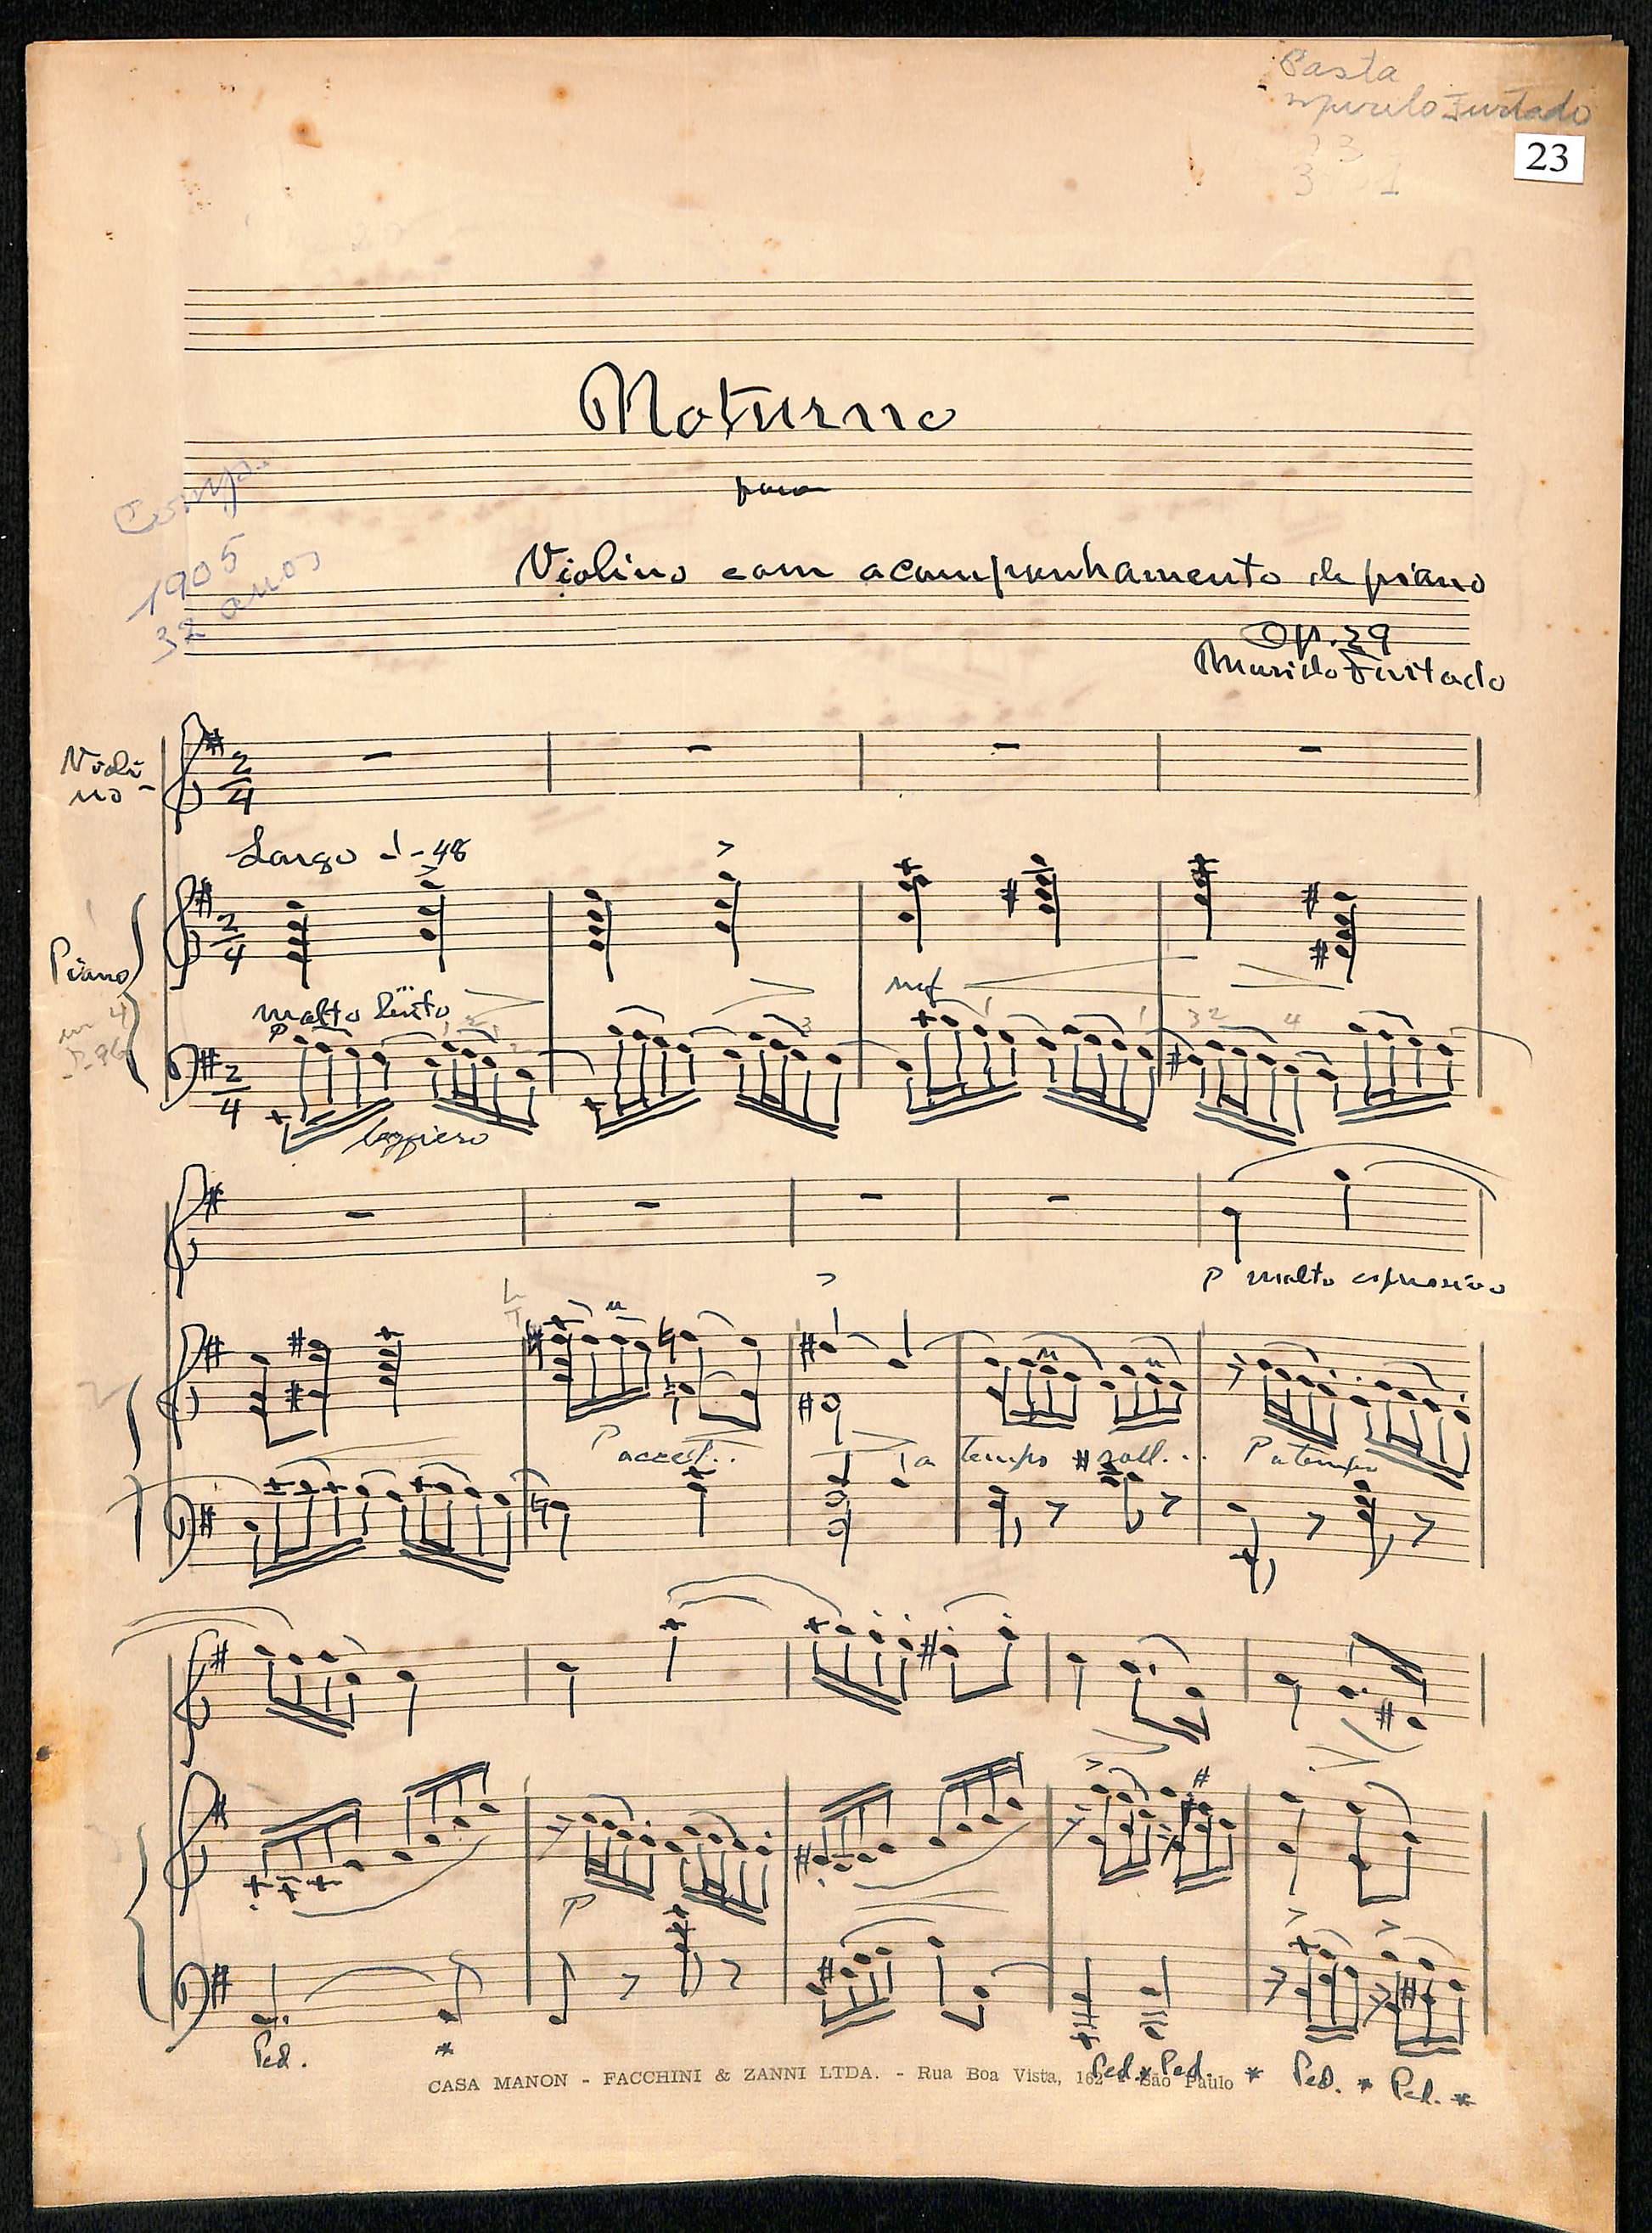 Pasta
Murilo Furtado
23
Noturno
para
Comp.
1905
32 anos
Violino com acompanhamento de piano
Op. 29
Murilo Furtado
Violi
no-
2
4
Largo ♩-48
Piano
2
4
molto lento
mf
p
2
4
leggiero
p molto espressivo
P accel..
a tempo rall...
P a tempo
P
Ped. *
Ped * Ped. * Ped. * Ped. *
CASA MANON - FACCHINI & ZANNI LTDA. - Rua Boa Vista, 162 - São Paulo